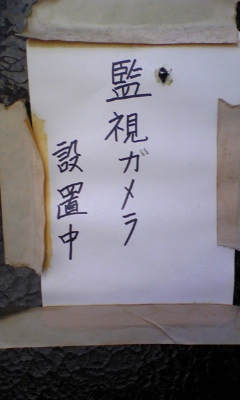 監視ガメラ
設置中